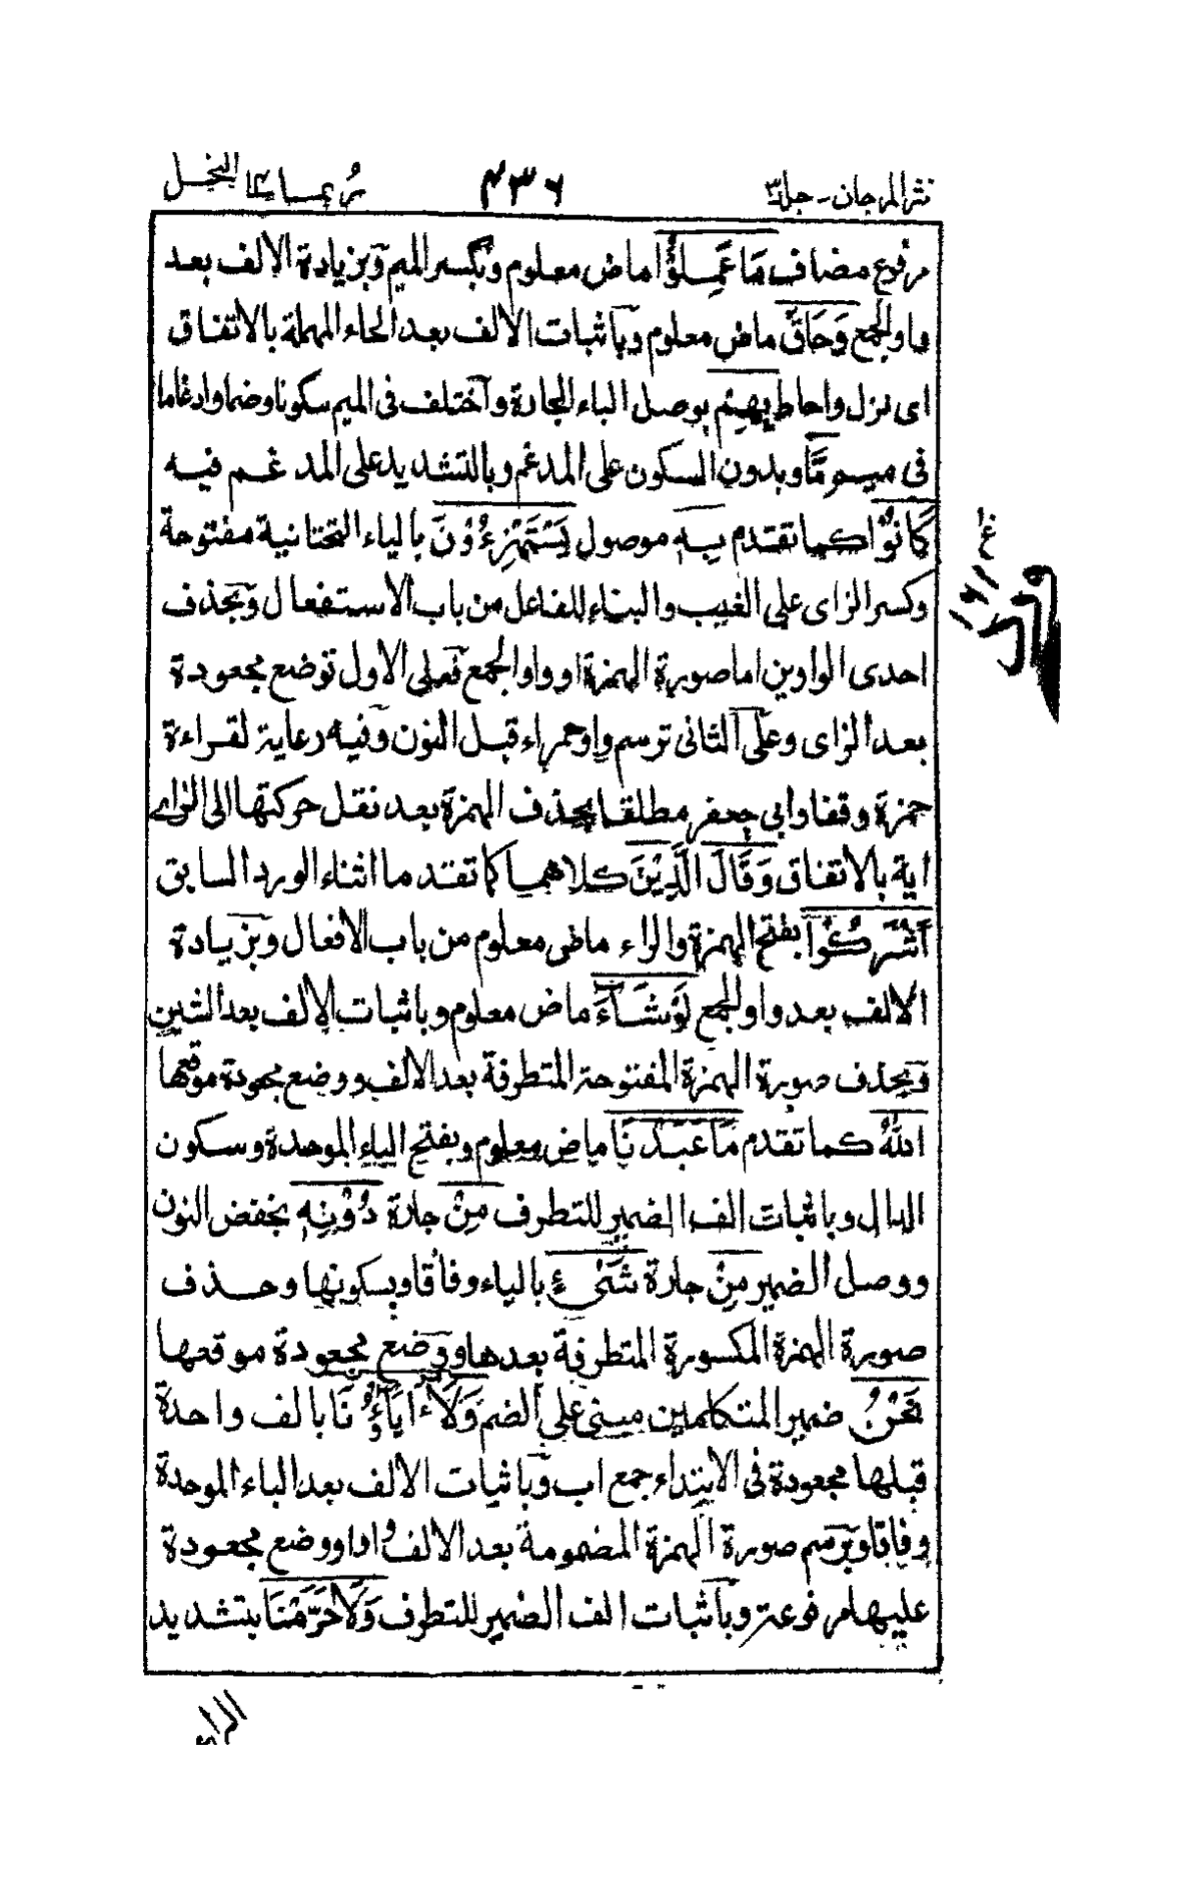 نثر المرجان - جلد٣ ٤٣٦ ربما ١٤ النحل
مرفوع مضاف مَا عَمِلُوْا ماض معلوم وبكسر الميم وبزيادة الالف بعد
واو الجمع وَحَاقَ ماض معلوم وباثبات الالف بعد الحاء المهملة بالاتفاق
اى نزل واحاط بِهِمْ بوصل الباء الجارة واختلف فى الميم سكونا وضما وادغاما
فى ميم مَّا وبدون السكون على المدغم وبالتشديد على المدغم فيه
كَانُوْا كما تقدم بِهٖ موصول يَسْتَهْزِءُوْنَ بالياء التحتانية مفتوحة
وكسر الزاى على الغيب والبناء للفاعل من باب الاستفعال وبحذف
احدى الواوين اما صورة الهمزة او واو الجمع فعلى الاول توضع مجعودة
بعد الزاى وعلى الثانى ترسم واو حمراء قبل النون وفيه رعاية لقراءة
حمزة وقفا وابى جعفر مطلقا بحذف الهمزة بعد نقل حركتها الى الزاے
اية بالاتفاق وَقَالَ الَّذِيْنَ كلاهما كما تقدما اثناء الورد السابق
اَشْرَكُوْا بفتح الهمزة والراء ماض معلوم من باب الافعال وبزيادة
الالف بعد واو الجمع لَوْ شَآءَ ماض معلوم وباثبات الالف بعد الشين
وبحذف صورة الهمزة المفتوحة المتطرفة بعد الالف ووضع مجعودة موقعها
اللّٰهُ كما تقدم مَا عَبَدْنَا ماض معلوم وبفتح الباء الموحدة وسكون
الدال وباثبات الف الضمير للتطرف مِنْ جارة دُوْنِهٖ بخفض النون
ووصل الضمير مِنْ جارة شَىْءٍ بالياء وفاقا وبسكونها وحذف
صورة الهمزة المكسورة المتطرفة بعدها ووضع مجعودة موقعها
نَحْنُ ضمير المتكلمين مبنى على الضم وَلَآ اٰبَآؤُنَا بالف واحدة
قبلها مجعودة فى الابتداء جمع اب وباثبات الالف بعد الباء الموحدة
وفاقا وبرسم صورة الهمزة المضمومة بعد الالف واوا ووضع مجعودة
عليها مرفوعة وباثبات الف الضمير للتطرف وَلَا حَرَّمْنَا بتشديد